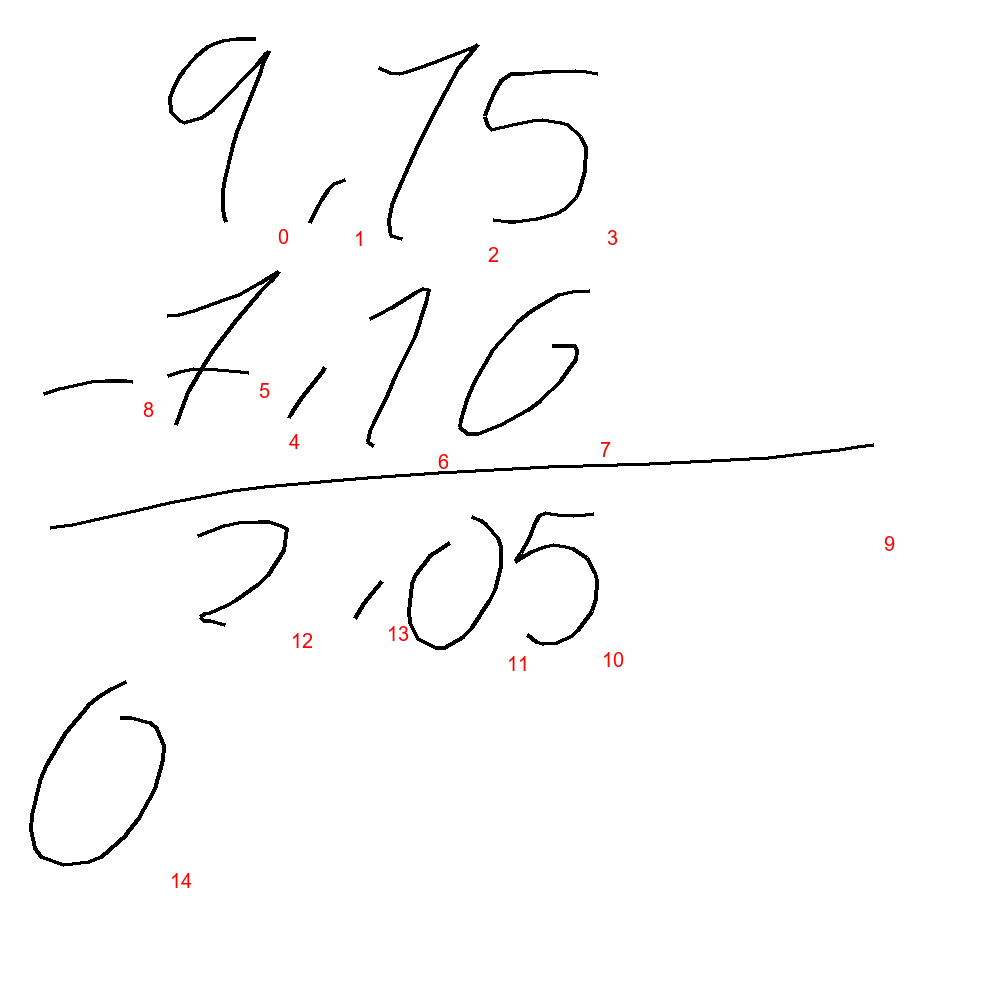 9,15
0 1 2 3
- 7,10
8 5 4 6 7
9
2,05
12 13 11 10
0
14